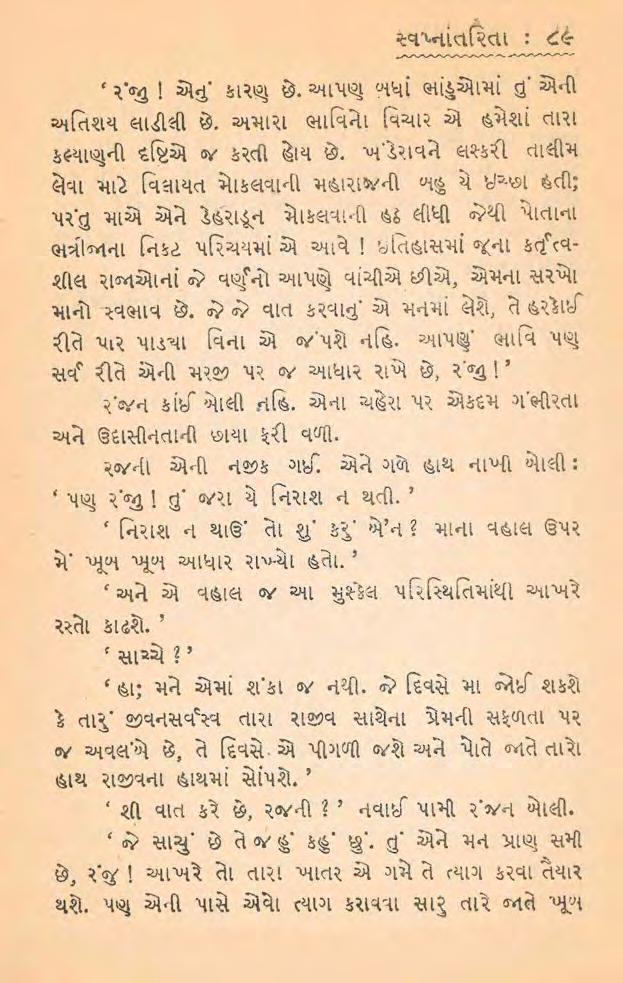 સ્વપ્નાંતરિતા : ૮૯
‘ રંજી ! એનું કારણ છે. આપણ બધાં ભાંડુઓમાં તું એની
અતિશય લાડીલી છે. અમારા ભાવિનો વિચાર એ હમેશાં તારા
કલ્યાણની દૃષ્ટિએ જ કરતી હોય છે. ખંડેરાવને લશ્કરી તાલીમ
લેવા માટે વિલાયત મોકલવાની મહારાજની બહુ યે ઇચ્છા હતી;
પરંતુ માએ એને ડેહરાડૂન મોકલવાની હઠ લીધી જેથી પોતાના
ભત્રીજાના નિકટ પરિચયમાં એ આવે ! ઇતિહાસમાં જૂના કર્તૃત્વ-
શીલ રાજાઓનાં જે વર્ણનો આપણે વાંચીએ છીએ, એમના સરખો
માનો સ્વભાવ છે. જે જે વાત કરવાનું એ મનમાં લેશે, તે હરકોઈ
રીતે પાર પાડ્યા વિના એ જંપશે નહિ. આપણું ભાવિ પણ
સર્વ રીતે એની મરજી પર જ આધાર રાખે છે, રંજી !’
રંજન કાંઈ બોલી નહિ. એના ચહેરા પર એકદમ ગંભીરતા
અને ઉદાસીનતાની છાયા ફરી વળી.
રજની એની નજીક ગઈ. એને ગળે હાથ નાખી બોલી :
‘ પણ રંજી ! તું જરા યે નિરાશ ન થતી. ’
‘ નિરાશ ન થાઉં તો શું કરું બે’ન ? માના વહાલ ઉપર
મેં ખૂબ ખૂબ આધાર રાખ્યો હતો. ’
‘ અને એ વહાલ જ આ મુશ્કેલ પરિસ્થિતિમાંથી આખરે
રસ્તો કાઢશે. ’
‘ સાચ્ચે ? ’
‘ હા; મને એમાં શંકા જ નથી. જે દિવસે મા જોઈ શકશે
કે તારું જીવનસર્વસ્વ તારા રાજીવ સાથેના પ્રેમની સફળતા પર
જ અવલંબે છે, તે દિવસે એ પીગળી જશે અને પોતે જાતે તારો
હાથ રાજીવના હાથમાં સોંપશે. ’
‘ શી વાત કરે છે, રજની ? ’ નવાઈ પામી રંજન બોલી.
‘ જે સાચું છે તે જ હું કહું છું. તું એને મન પ્રાણ સમી
છે, રંજુ ! આખરે તો તારા ખાતર એ ગમે તે ત્યાગ કરવા તૈયાર
થશે. પણ એની પાસે એવો ત્યાગ કરાવવા સારુ તારે જાતે ખૂબ